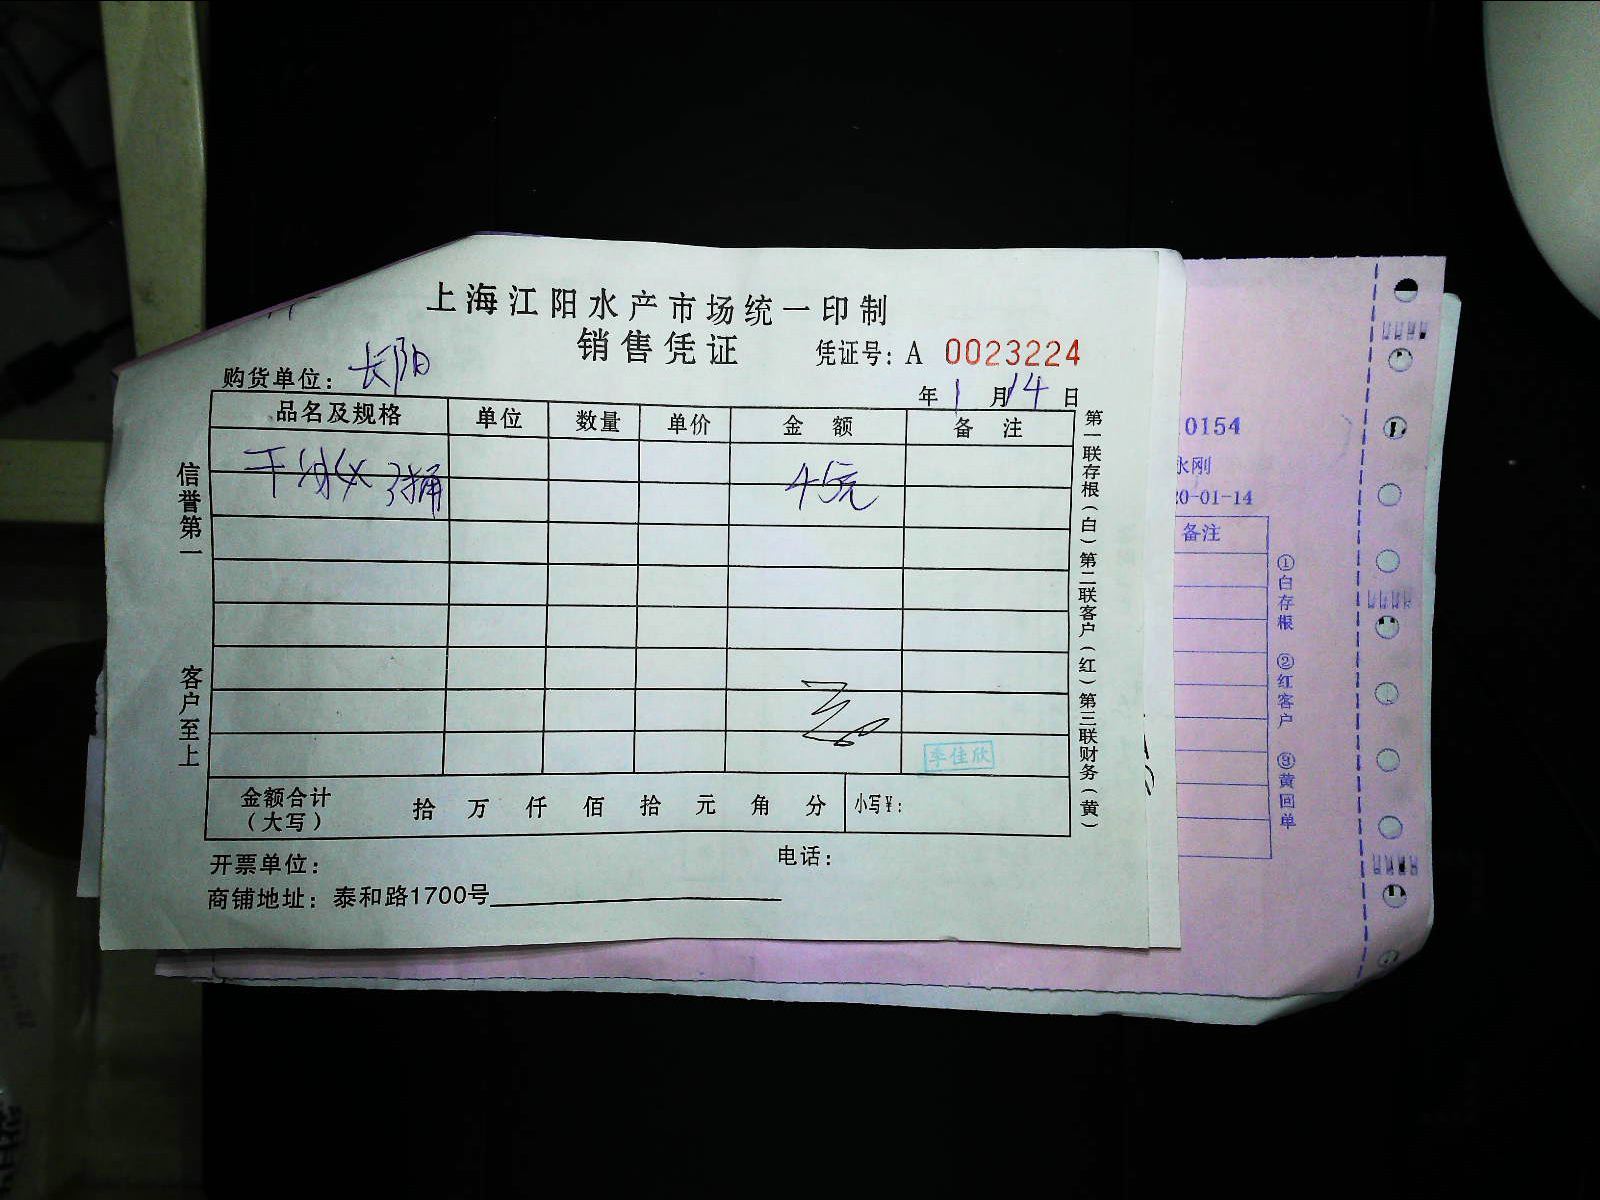 上海江阳水产市场统一印制
销售凭证
凭证号: A 0023224
购货单位: 长阳
年 1 月 14 日
品名及规格 单位 数量 单价 金额 备注
干 3桶 45元
李佳欣
金额合计(大写) 拾 万 仟 佰 拾 元 角 分 小写¥:
开票单位: 电话:
商铺地址: 泰和路1700号
信誉第一
客户至上
第一联存根(白)第二联客户(红)第三联财务(黄)
0154
永刚
0-01-14
备注
①白存根 ②红客户 ③黄回单